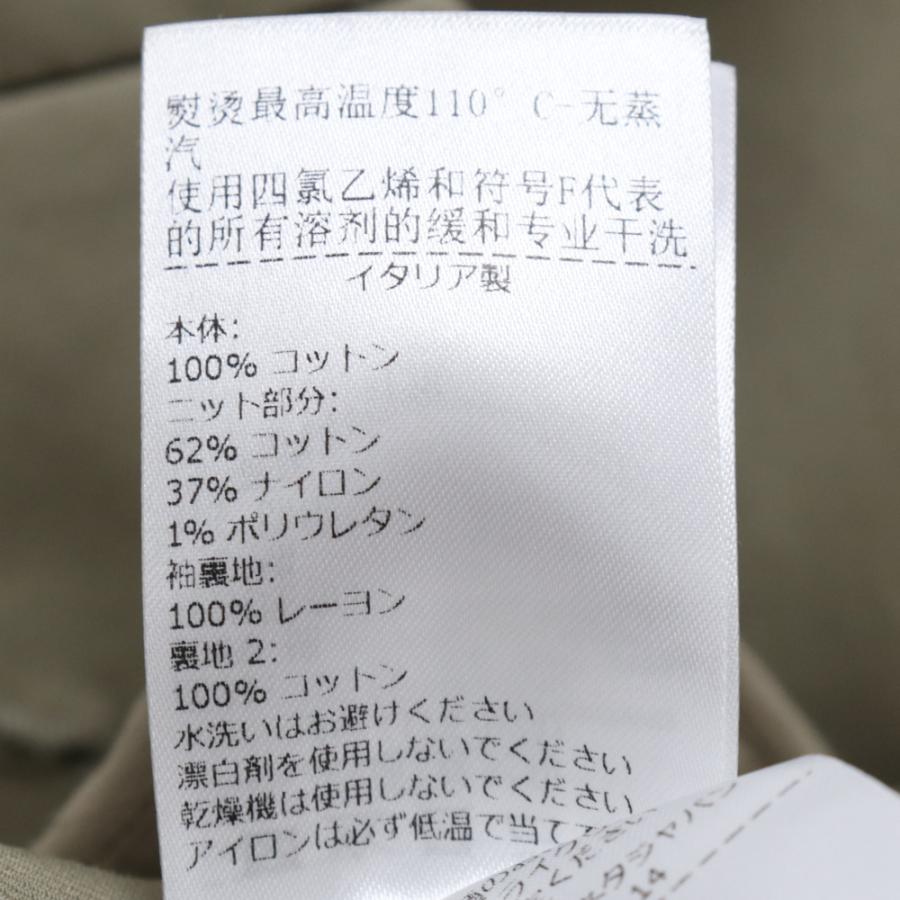 熨烫最高温度110° C-无蒸
汽
使用四氯乙烯和符号F代表
的所有溶剂的缓和专业干洗
イタリア製
本体:
100% コットン
ニット部分:
62% コットン
37% ナイロン
1% ポリウレタン
袖裏地:
100% レーヨン
裏地 2:
100% コットン
水洗いはお避けください
漂白剤を使用しないでください
乾燥機は使用しないでください
アイロンは必ず低温で当て
ください
タジャパン
14